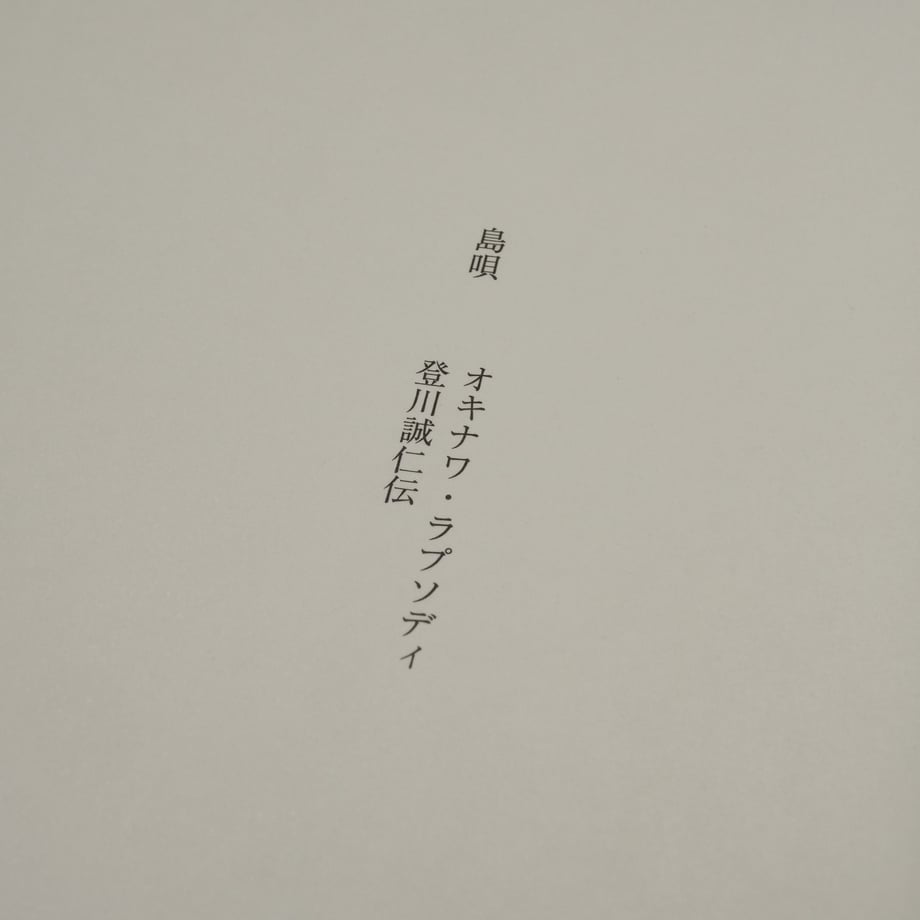 島唄
オキナワ・ラプソディ
登川誠仁伝